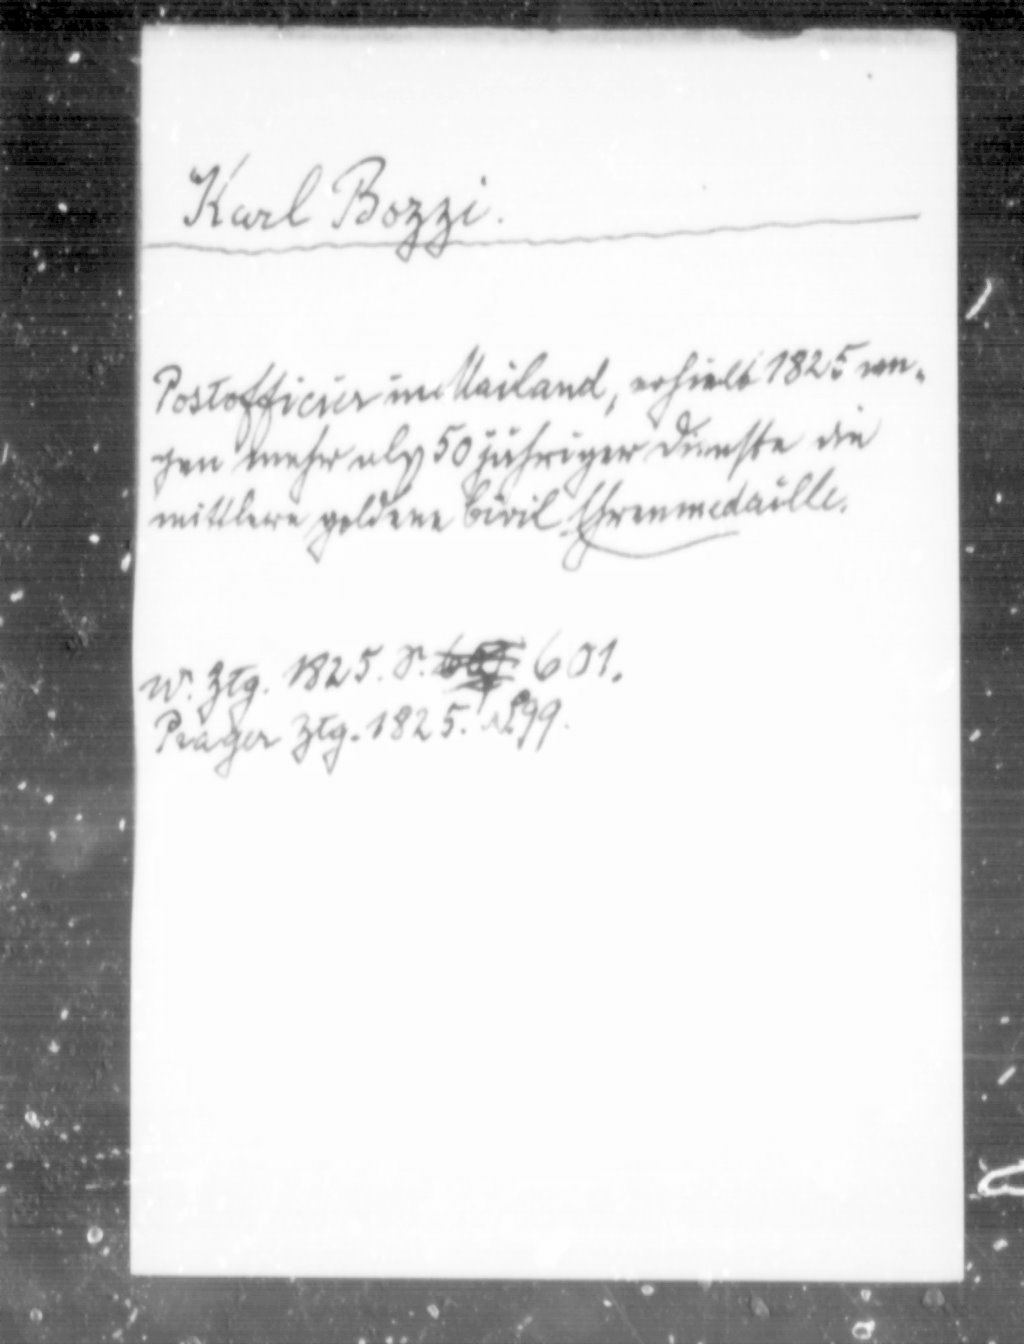 Karl Bozzi.
Postofficier in Mailand, erhielt 1825 we-
gen mehr als 50 jähriger Dienste die
mittlere goldene Civil Ehrenmedaille.
W. Ztg. 1825. S. 601.
Prager Ztg. 1825. 99.